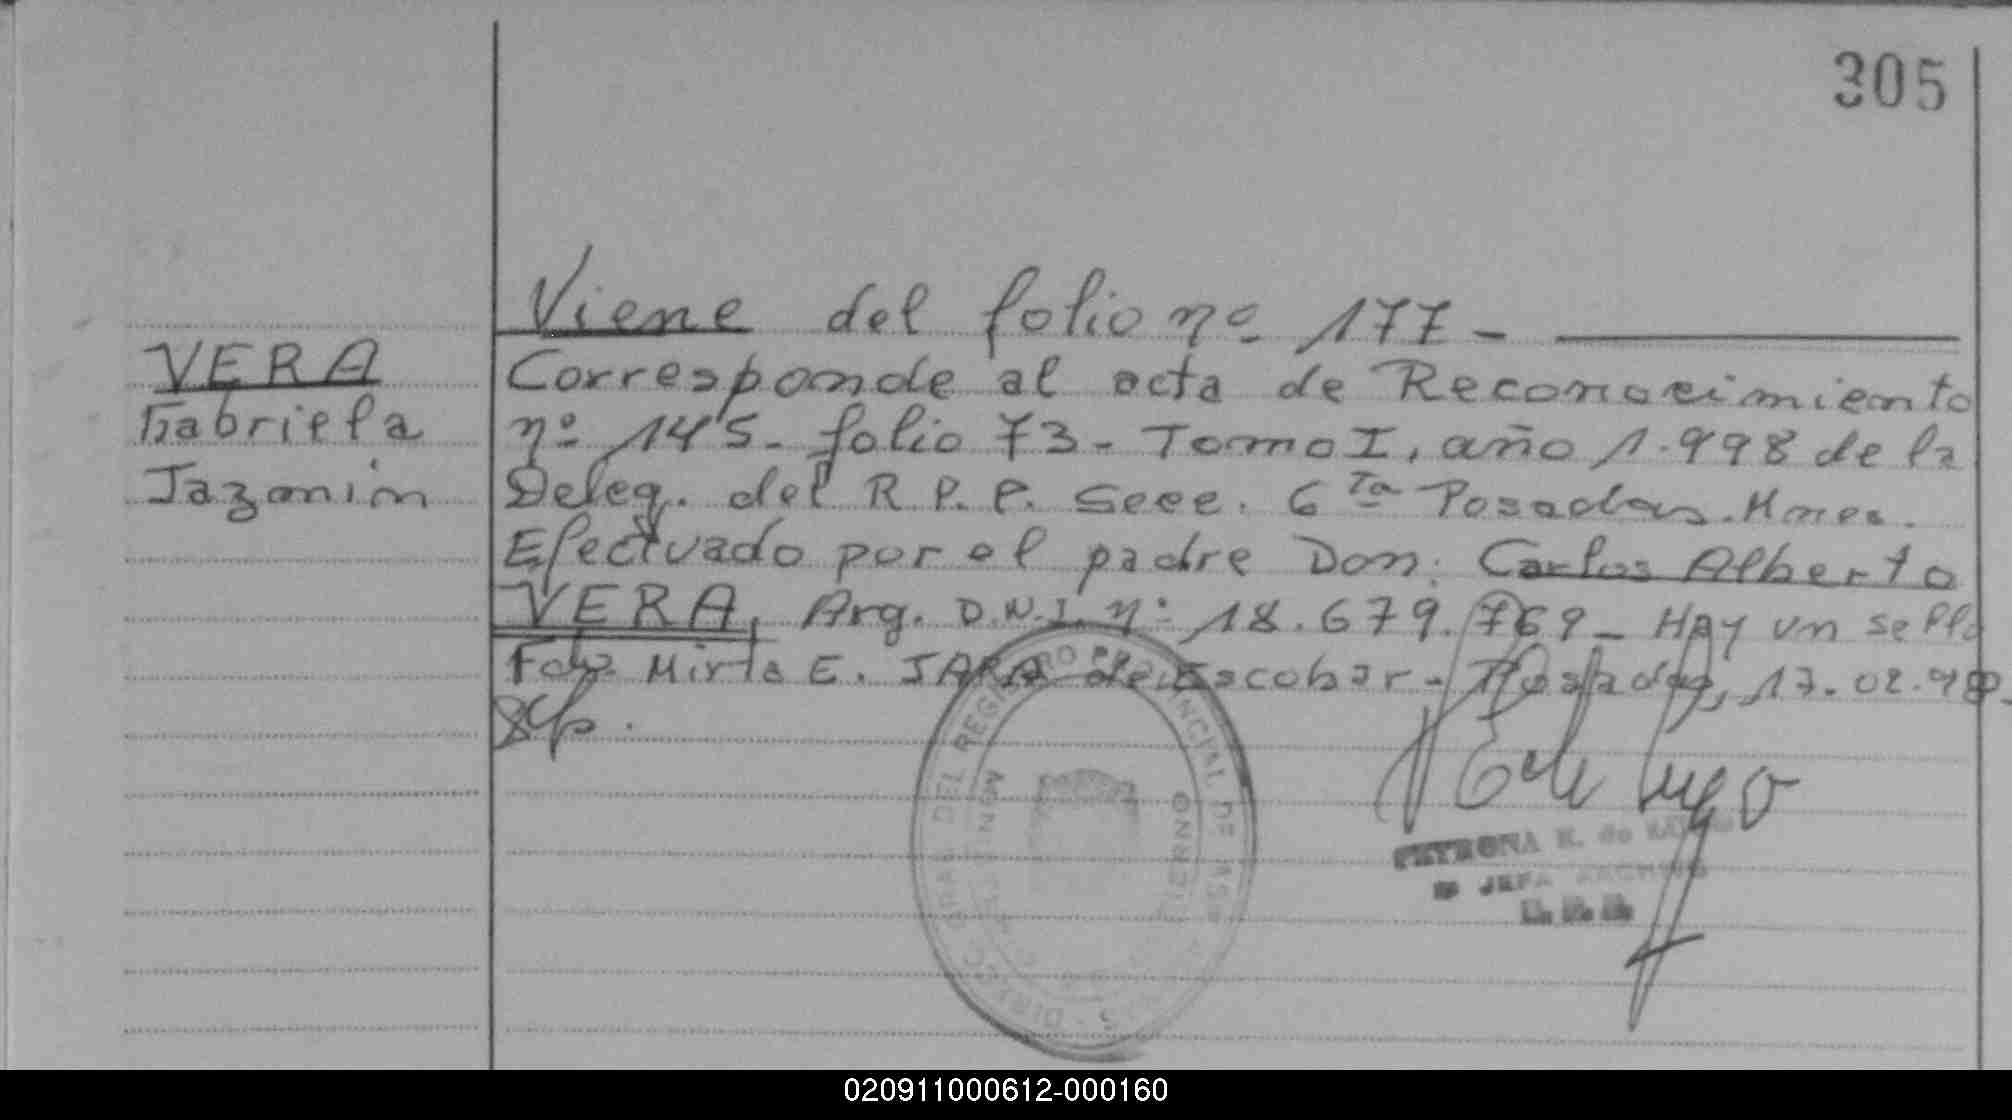 305
Viene del folio nº 177 -
VERA
Gabriela
Jazmin
Corresponde al acta de Reconocimiento
nº 145 - folio 73 - Tomo I, año 1.998 de la
Deleg. del R. P. P. Secc. 6ta Posadas. Mnes.
Efectuado por el padre Don: Carlos Alberto
VERA, Arg. D.N.I. nº 18.679.769 - Hay un sello
Fdo. Mirta E. JARA de Escobar - Posadas, 17.02.98
PETRONA R. de
JEFA ARCHIVO
020911000612-000160